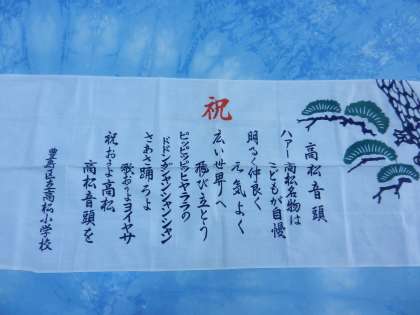 高松音頭
ハアー高松名物は
こどもが自慢
明るく仲良く
元気よく
祝
広い世界へ
飛び立とう
ピッピッピヒャララの
ドドンガシャンシャンシャン
さあさ踊ろよ
歌おうよヨイヤサ
祝おうよ高松
高松音頭を
豊島区立高松小学校